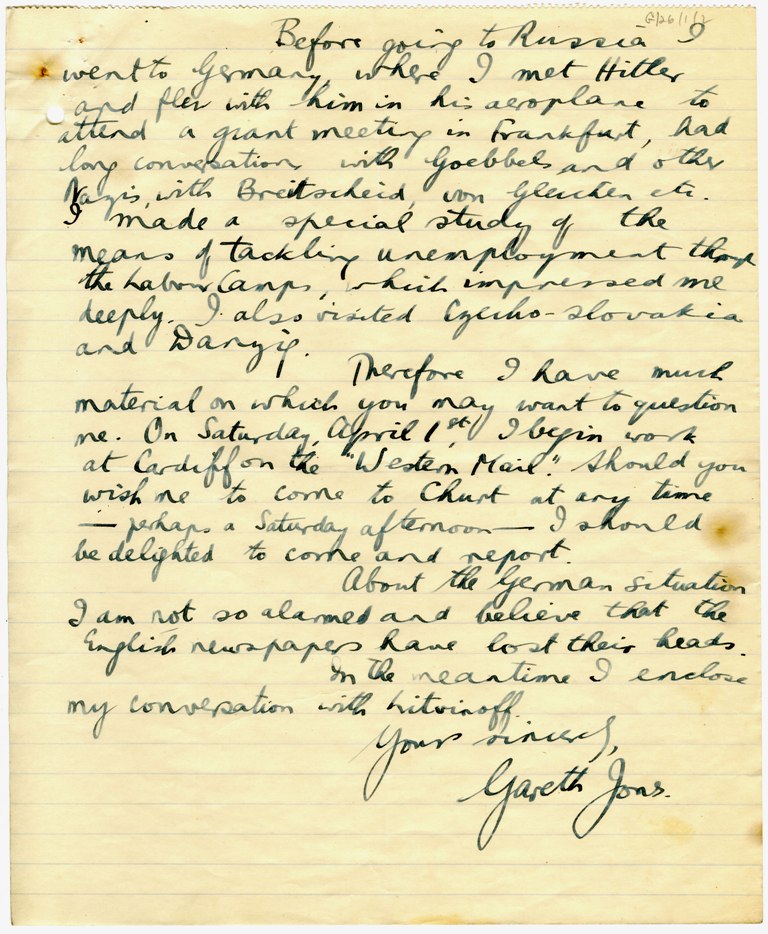 G/26/1/2
Before going to Russia I
went to Germany, where I met Hitler
and flew with him in his aeroplane to
attend a giant meeting in Frankfurt, had
long conversations with Goebbels and other
Nazis, with Breitscheid, von Gleichen etc.
I made a special study of the
means of tackling unemployment through
the Labour Camps, which impressed me
deeply. I also visited Czecho-slovakia
and Danzig.
Therefore I have much
material on which you may want to question
me. On Saturday, April 1st, I begin work
at Cardiff on the "Western Mail." Should you
wish me to come to Churt at any time
— perhaps a Saturday afternoon — I should
be delighted to come and report.
About the German situation
I am not so alarmed and believe that the
English newspapers have lost their heads.
In the meantime I enclose
my conversation with Litvinoff.
Yours sincerely,
Gareth Jones.